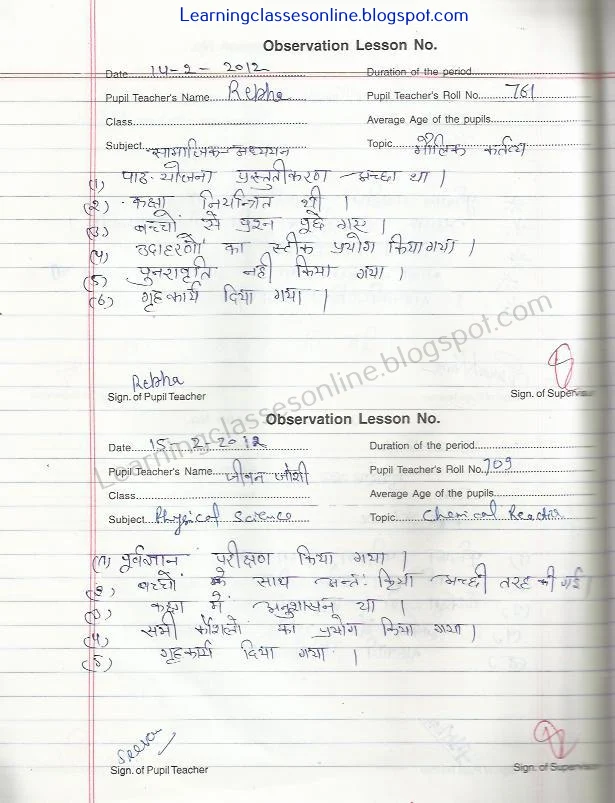 Learningclassesonline.blogspot.com
Observation Lesson No.
Date 14-2-2012 Duration of the period
Pupil Teacher's Name Rekha Pupil Teacher's Roll No. 761
Class Average Age of the pupils
Subject सामाजिक अध्ययन Topic मौलिक कर्तव्य
(1) पाठ योजना प्रस्तुतीकरण अच्छा था।
(2) कक्षा नियन्त्रित थी।
(3) बच्चों से प्रश्न पूछे गए।
(4) उदाहरणों का स्टीक प्रयोग किया गया।
(5) पुनरावृति नही किया गया।
(6) गृहकार्य दिया गया।
Learningclassesonline.blogspot.com
Rekha
Sign. of Pupil Teacher Sign. of Supervisor
Observation Lesson No.
Date 15-2-2012 Duration of the period
Pupil Teacher's Name जीवन जोशी Pupil Teacher's Roll No. 709
Class Average Age of the pupils
Subject Physical Science Topic Chemical
(1) पूर्वज्ञान परीक्षण किया गया।
(2) बच्चों के साथ अन्तः क्रिया अच्छी तरह की गई
(3) कक्षा में अनुशासन था।
(4) सभी कौशलों का प्रयोग किया गया।
(5) गृहकार्य दिया गया।
Sign. of Pupil Teacher Sign. of Supervisor